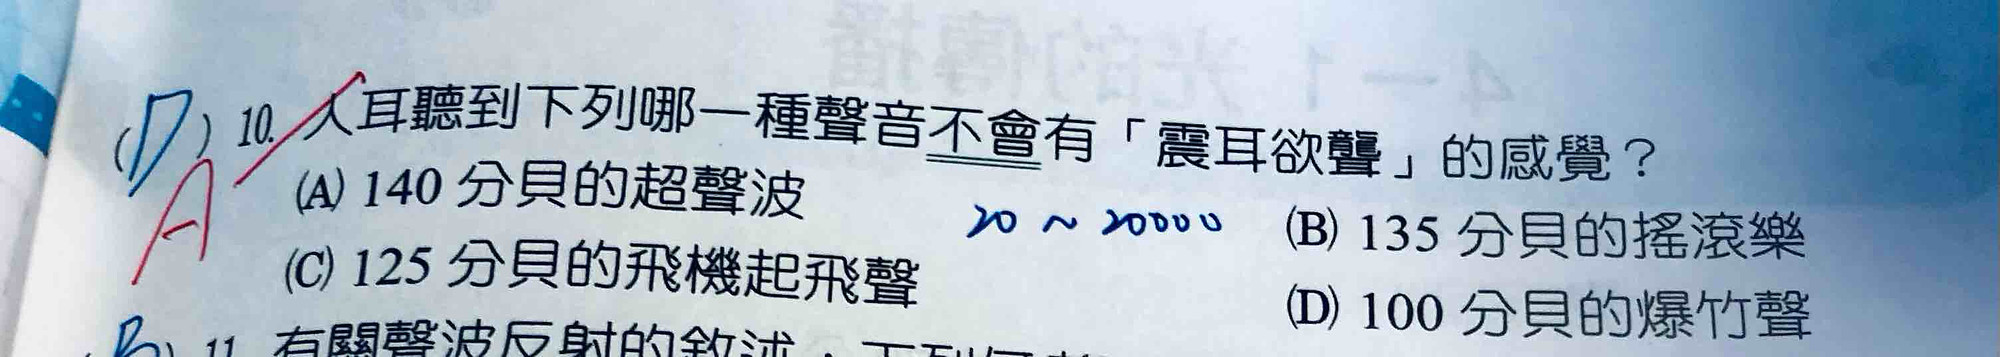 4-1 光的傳播
(D) 10. 人耳聽到下列哪一種聲音不會有「震耳欲聾」的感覺？
A
(A) 140 分貝的超聲波
20 ~ 20000
(B) 135 分貝的搖滾樂
(C) 125 分貝的飛機起飛聲
(D) 100 分貝的爆竹聲
(B) 11. 有關聲波反射的敘述，下列何者